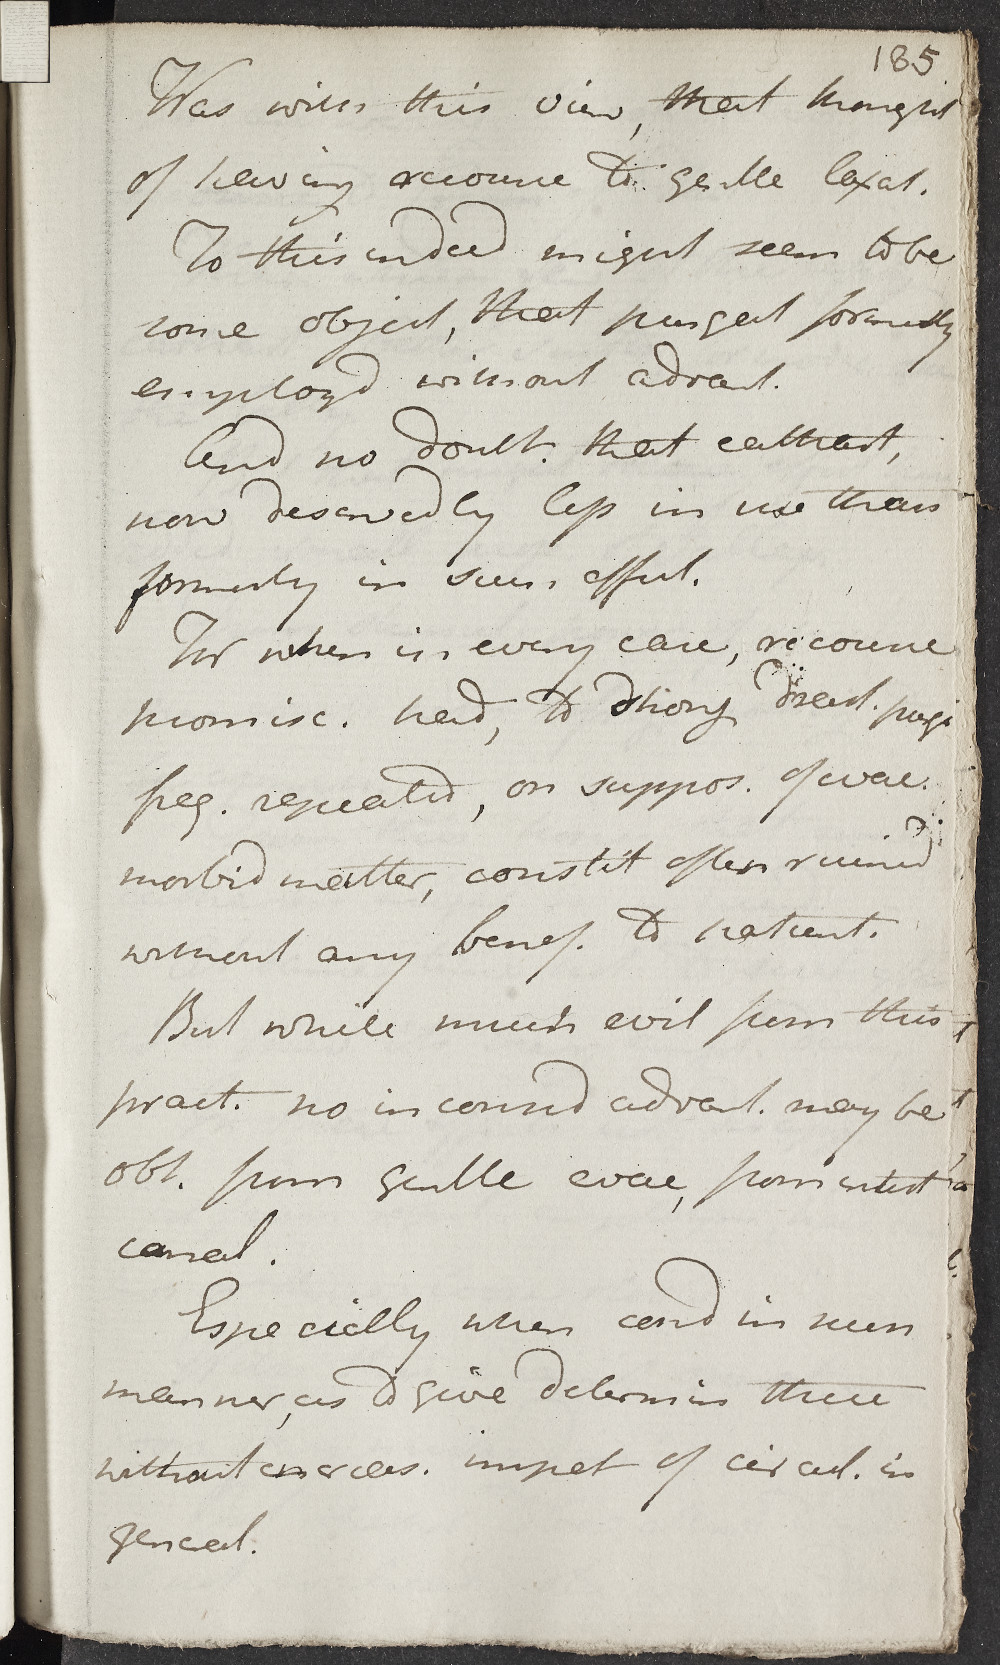 185
Was with this view, that thought
of having recourse to gentle laxat.
To this indeed might seem to be
some object, that purgat formerly
employd without advant.
And no doubt. that cathart,
now deservedly less in use than
formerly in such effect.
For when in every case, recourse
promisc. had, to strong drast. purgi
freq. repeated, on suppos. of evac.
morbid matter, constit often ruined
without any benef. to patient.
But while much evil from this
pract. no inconsid advant. may be
obt. from gentle evac, from intest
canal.
Especially when cond in such
manner, as to give determin there
without encreas. impet of circul. in
general.